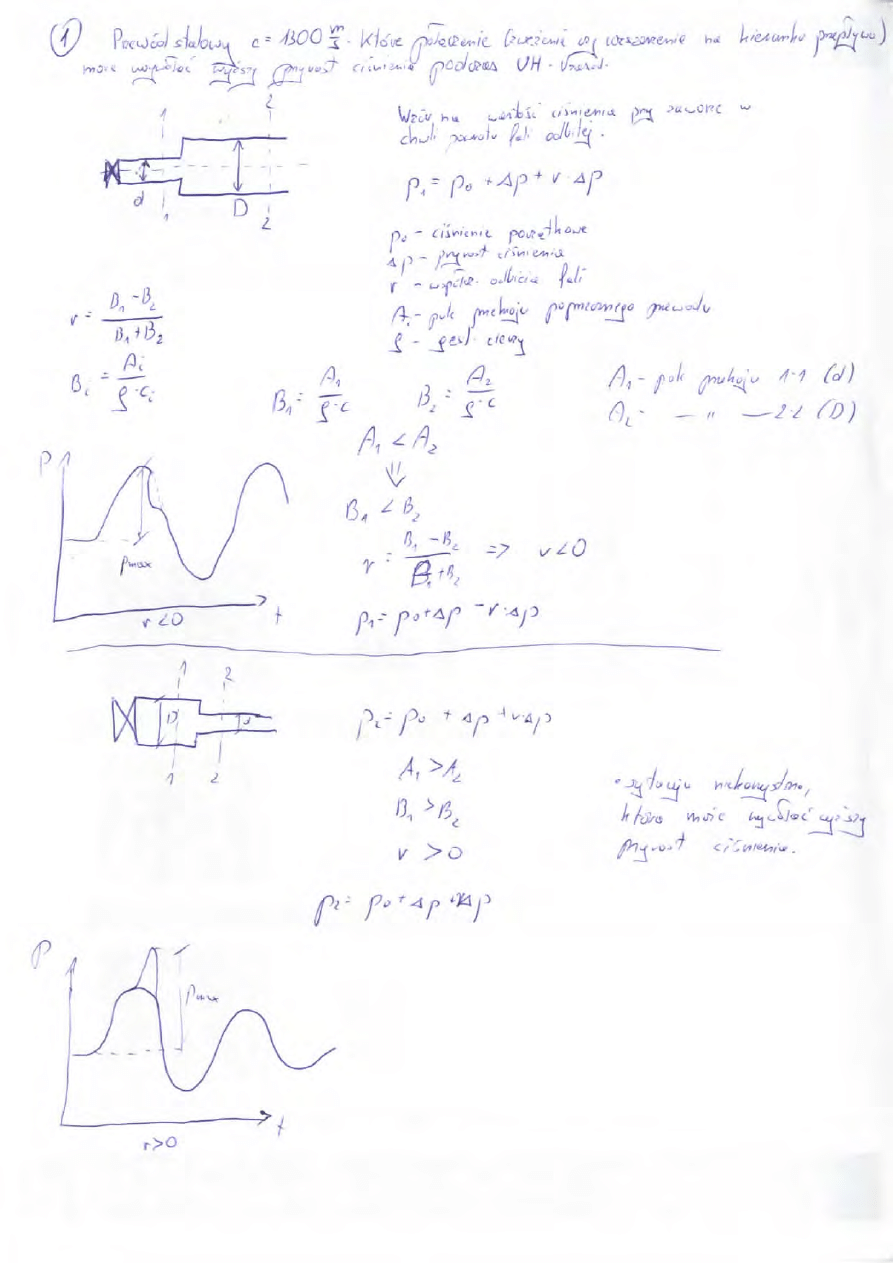 1 Przewód stalowy c = 1300 m/s. Które połączenie (zwężenie czy rozszerzenie na kierunku przepływu)
może wywołać wyższy przyrost ciśnienia podczas UH. Uzasad.
1
2
d
D
1
2
Wzór na wartość ciśnienia przy zaworze w
chwili powrotu fali odbitej.
p₁ = p₀ + Δp + r·Δp
p₀ - ciśnienie początkowe
Δp - przyrost ciśnienia
r - współcz. odbicia fali
Aᵢ - pole przekroju poprzecznego przewodu
ρ - gęst. cieczy
r = (B₁ - B₂)/(B₁ + B₂)
Bᵢ = Aᵢ/(ρ·cᵢ)
B₁ = A₁/(ρ·c)
B₂ = A₂/(ρ·c)
A₁ - pole przekroju 1-1 (d)
A₂ - — " — 2-2 (D)
A₁ < A₂
⇓
B₁ < B₂
r = (B₁ - B₂)/(B₁ + B₂) => r < 0
p₁ = p₀ + Δp - r·Δp
P
pmax
r < 0
t
1
2
D
d
1
2
p₂ = p₀ + Δp + r·Δp
A₁ > A₂
B₁ > B₂
r > 0
• sytuacja niekorzystna,
która może wywołać wyższy
przyrost ciśnienia.
p₂ = p₀ + Δp + rΔp
P
pmax
t
r > 0